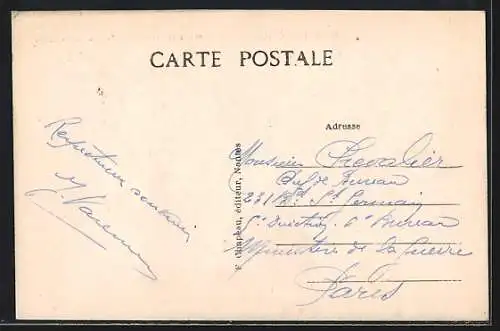 CARTE POSTALE
Adresse
Respectueux souvenir
F. Chapeau, éditeur, Nantes
Monsieur Chevalier
Chef de Bureau
231 Bd St Germain
5e Direction 6e Bureau
Ministère de la Guerre
Paris